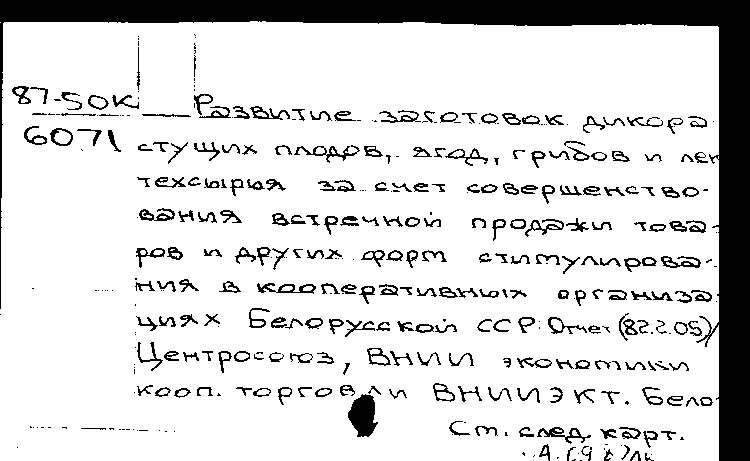 87-50К Развитие заготовок дикора
6071 стущих плодов, ягод, грибов и лек
техсырья за счет совершенство-
вания встречной продажи това-
ров и других форм стимулирова-
ния в кооперативных организа
циях Белорусской ССР: Отчет (82.2.05)/
Центросоюз, ВНИИ экономики
кооп. торговли ВНИИЭКТ. Бело
См. след. карт.